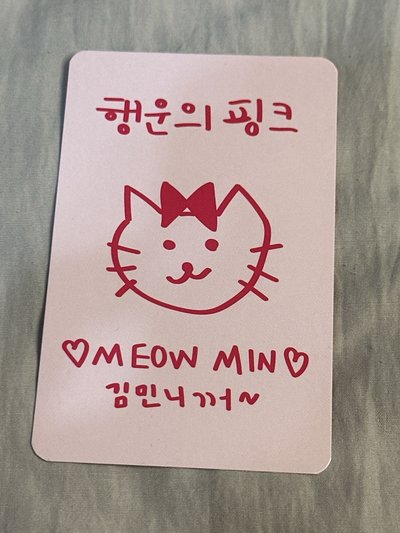 행운의 핑크
♡MEOW MIN♡
김민니꺼~